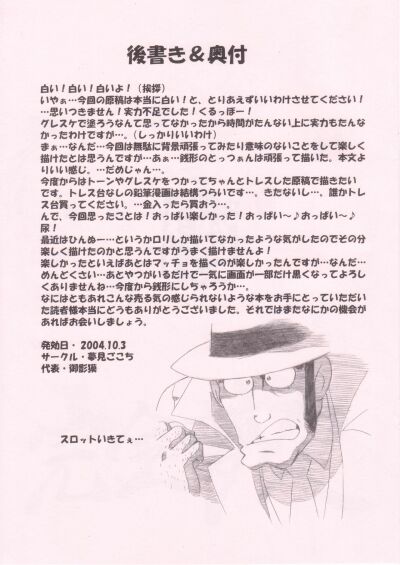 後書き＆奥付
白い！白い！白いよ！（挨拶）
いやぁ…今回の原稿は本当に白い！と、とりあえずいいわけさせてください！
…思いつきません！実力不足でした！くるっぽー！
グレスケで塗ろうなんて思ってなかったから時間がたんない上に実力もたんな
かったわけですが…。（しっかりいいわけ）
まぁ…なんだ…今回は無駄に背景頑張ってみたり意味のないことをして楽しく
描けたとは思うんですが…あぁ…銭形のとっつぁんは頑張って描いた。本文よ
りいい感じ。…だめじゃん…。
今度からはトーンやグレスケをつかってちゃんとトレスした原稿で描きたい
です。トレス台なしの鉛筆漫画は結構つらいです…。きたないし…。誰かトレ
ス台買ってください。…金入ったら買おう…。
んで、今回思ったことは！おっぱい楽しかった！おっぱい～♪おっぱい～♪
尿！
最近はひんぬー…というかロリしか描いてなかったような気がしたのでその分
楽しく描けたのかと思うんですがうまく描けませんよ！
楽しかったといえばあとはマッチョを描くのが楽しかったんですが…なんだ…
めんどくさい…あとやつがいるだけで一気に画面が一部だけ黒くなってよろし
くありませんね…今度から銭形にしちゃろうか…。
なにはともあれこんな売る気の感じられないような本をお手にとっていただい
た読者様本当にどうもありがとうございました。それではまたなにかの機会が
あればお会いしましょう。
発効日・2004.10.3
サークル・夢見ごこち
代表・御影獏
スロットいきてぇ…